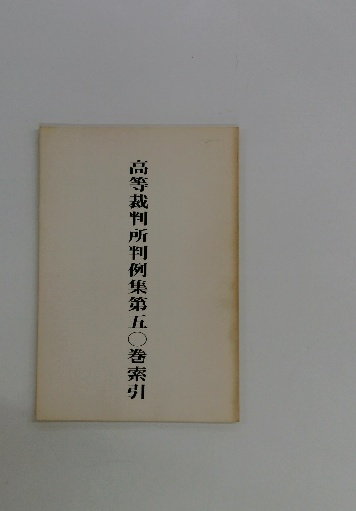 高等裁判所判例集第五〇巻索引